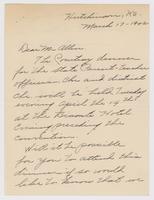 Hutchinson, Ks.
March 17-1942
Dear Mr. Allen
The Courtesy dinner
for the State Parent-Teacher
officers and district
will be held Tuesday
evening April the 14th
at the Hotel
Evening preceding the
convention.
Will it be possible
for you to attend this
dinner if so would
like to know that we